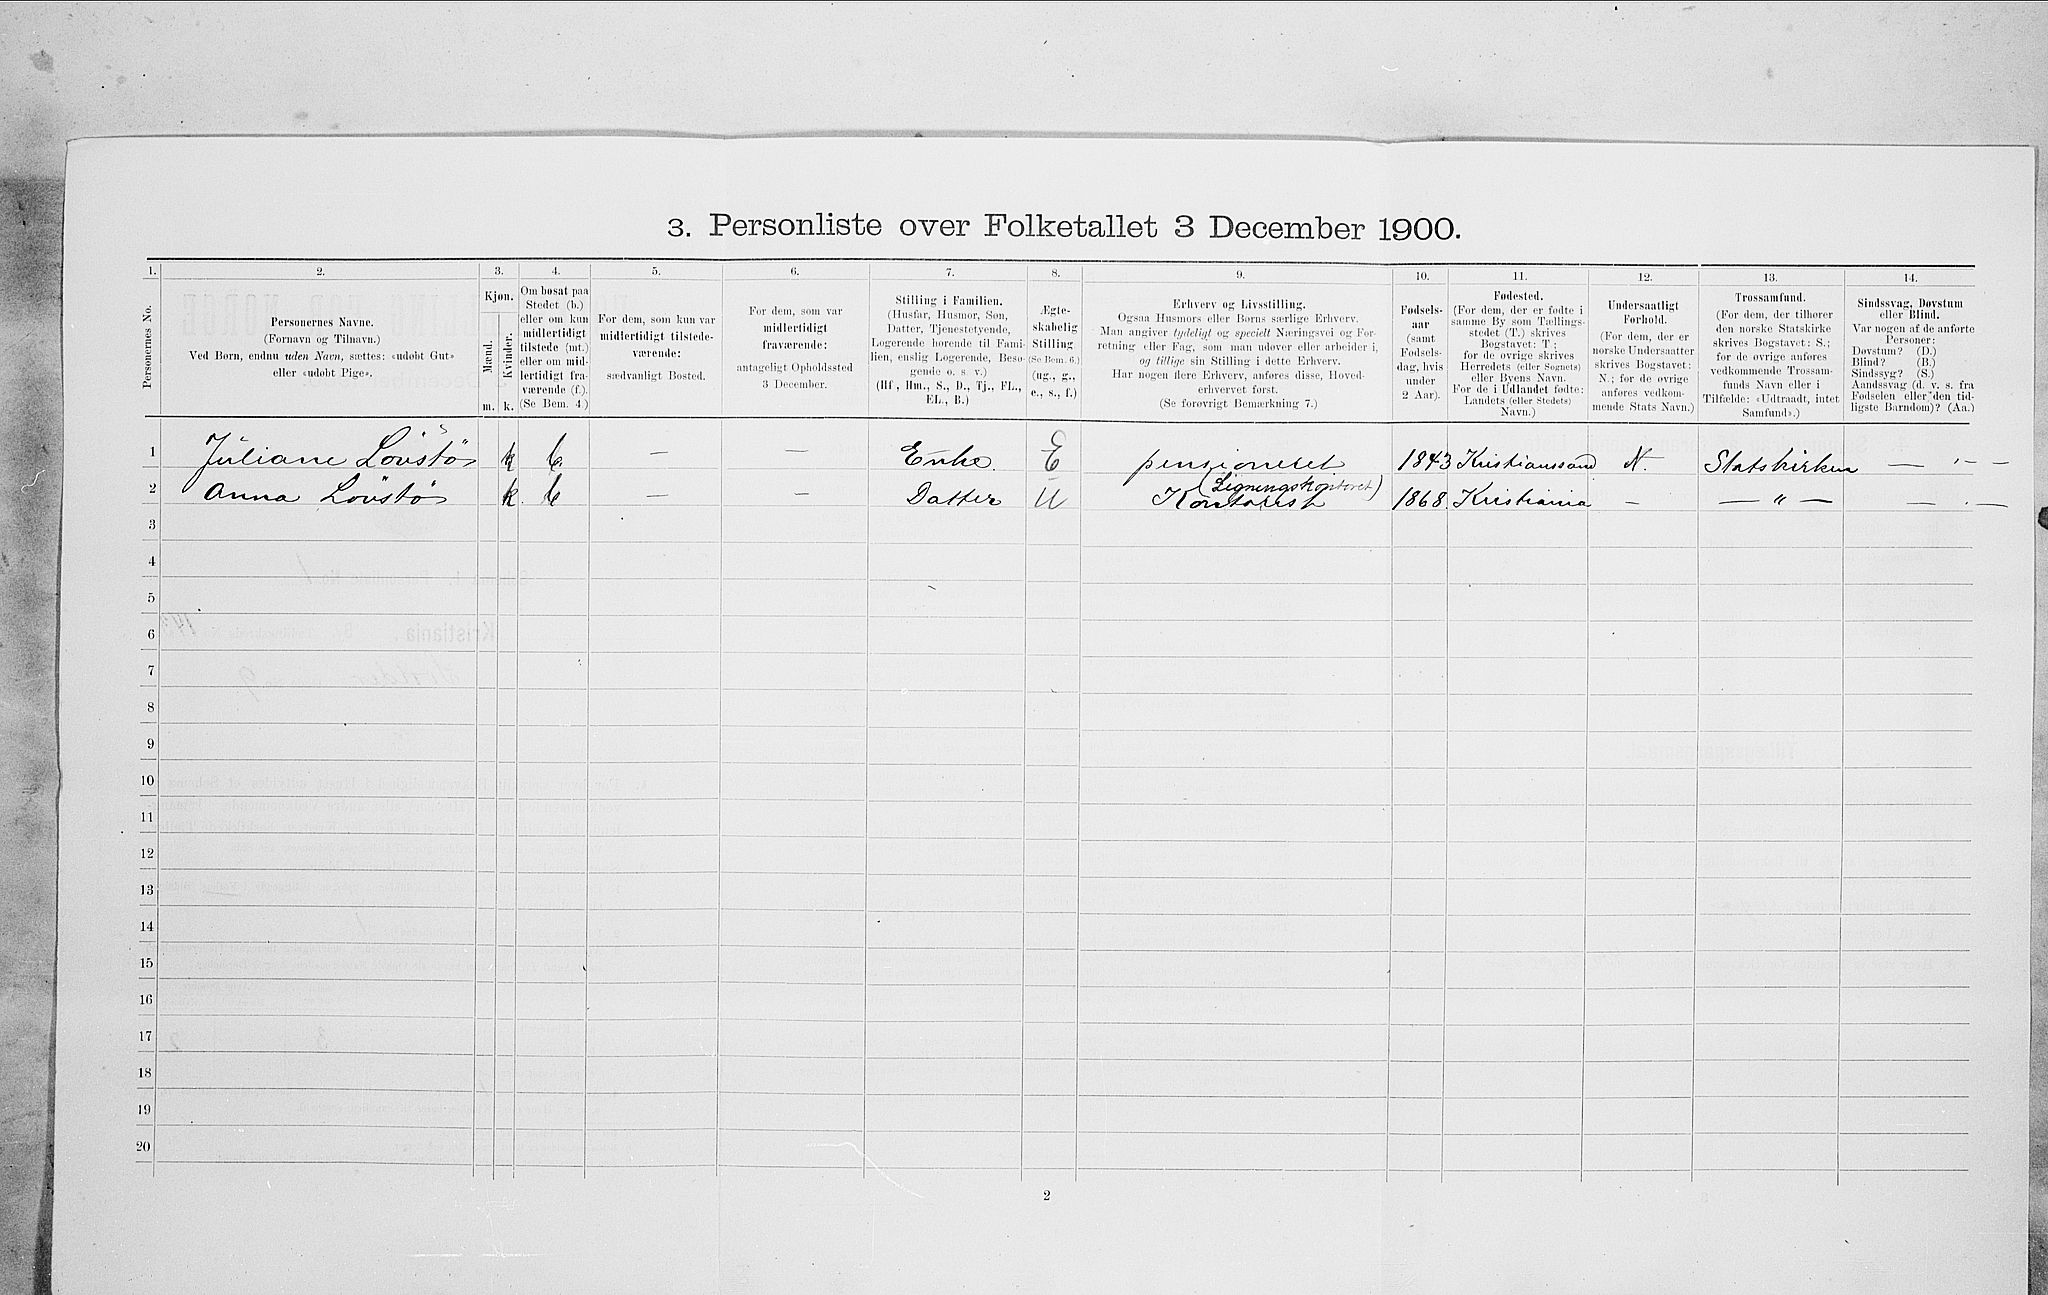 3. Personliste over Folketallet 3 December 1900.
1. 2. 3. 4. 5. 6. 7. 8. 9. 10. 11. 12. 13. 14.
Personernes No.
Personernes Navne.
(Fornavn og Tilnavn.)
Ved Børn, endnu uden Navn, sættes: «udøbt Gut»
eller «udøbt Pige».
Kjøn.
Mænd.
Kvinder.
m. k.
Om bosat paa
Stedet (b.)
eller om kun
midlertidigt
tilstede (mt.)
eller om mid-
lertidigt fra-
værende (f.).
(Se Bem. 4.)
For dem, som kun var
midlertidigt tilstede-
værende:
sædvanligt Bosted.
For dem, som var
midlertidigt
fraværende:
antageligt Opholdssted
3 December.
Stilling i Familien.
(Husfar, Husmor, Søn,
Datter, Tjenestetyende,
Logerende hørende til Fami-
lien, enslig Logerende, Besø-
gende o. s. v.)
(Hf., Hm., S., D., Tj., FL.,
EL., B.)
Ægte-
skabelig
Stilling.
(Se Bem. 6.)
(ug., g.,
e., s., f.)
Erhverv og Livsstilling.
Ogsaa Husmors eller Børns særlige Erhverv.
Man angiver tydeligt og specielt Næringsvei og For-
retning eller Fag, som man udøver eller arbeider i,
og tillige sin Stilling i dette Erhverv.
Har nogen flere Erhverv, anføres disse, Hoved-
erhvervet først.
(Se forøvrigt Bemærkning 7.)
Fødsels-
aar
(samt
Fødsels-
dag, hvis
under
2 Aar).
Fødested.
(For dem, der er fødte i
samme By som Tællings-
stedet (T.) skrives
Bogstavet: T;
for de øvrige skrives
Herredets (eller Sognets)
eller Byens Navn.
For de i Udlandet fødte:
Landets (eller Stedets)
Navn.)
Undersaatligt
Forhold.
(For dem, der er
norske Undersaatter
skrives Bogstavet:
N.; for de øvrige
anføres vedkom-
mende Stats Navn.)
Trossamfund.
(For dem, der tilhører
den norske Statskirke
skrives Bogstavet: S.;
for de øvrige anføres
vedkommende Trossam-
funds Navn eller i
Tilfælde: «Udtraadt, intet
Samfund».)
Sindssvag, Døvstum
eller Blind.
Var nogen af de anførte
Personer:
Døvstum? (D.)
Blind? (B.)
Sindssyg? (S.)
Aandssvag (d. v. s. fra
Fødselen eller den tid-
ligste Barndom)? (Aa.)
1 Juliane Loustø k b — — Enke. E pensioneret 1843 Kristianssand N. Statskirken — „ —
(Ligningskontoret)
2 Anna Loustø k. b — — Datter U Kontorist 1868. Kristiania — — „ — — . —
3
4
5
6
7
8
9
10
11
12
13
14
15
16
17
18
19
20
2